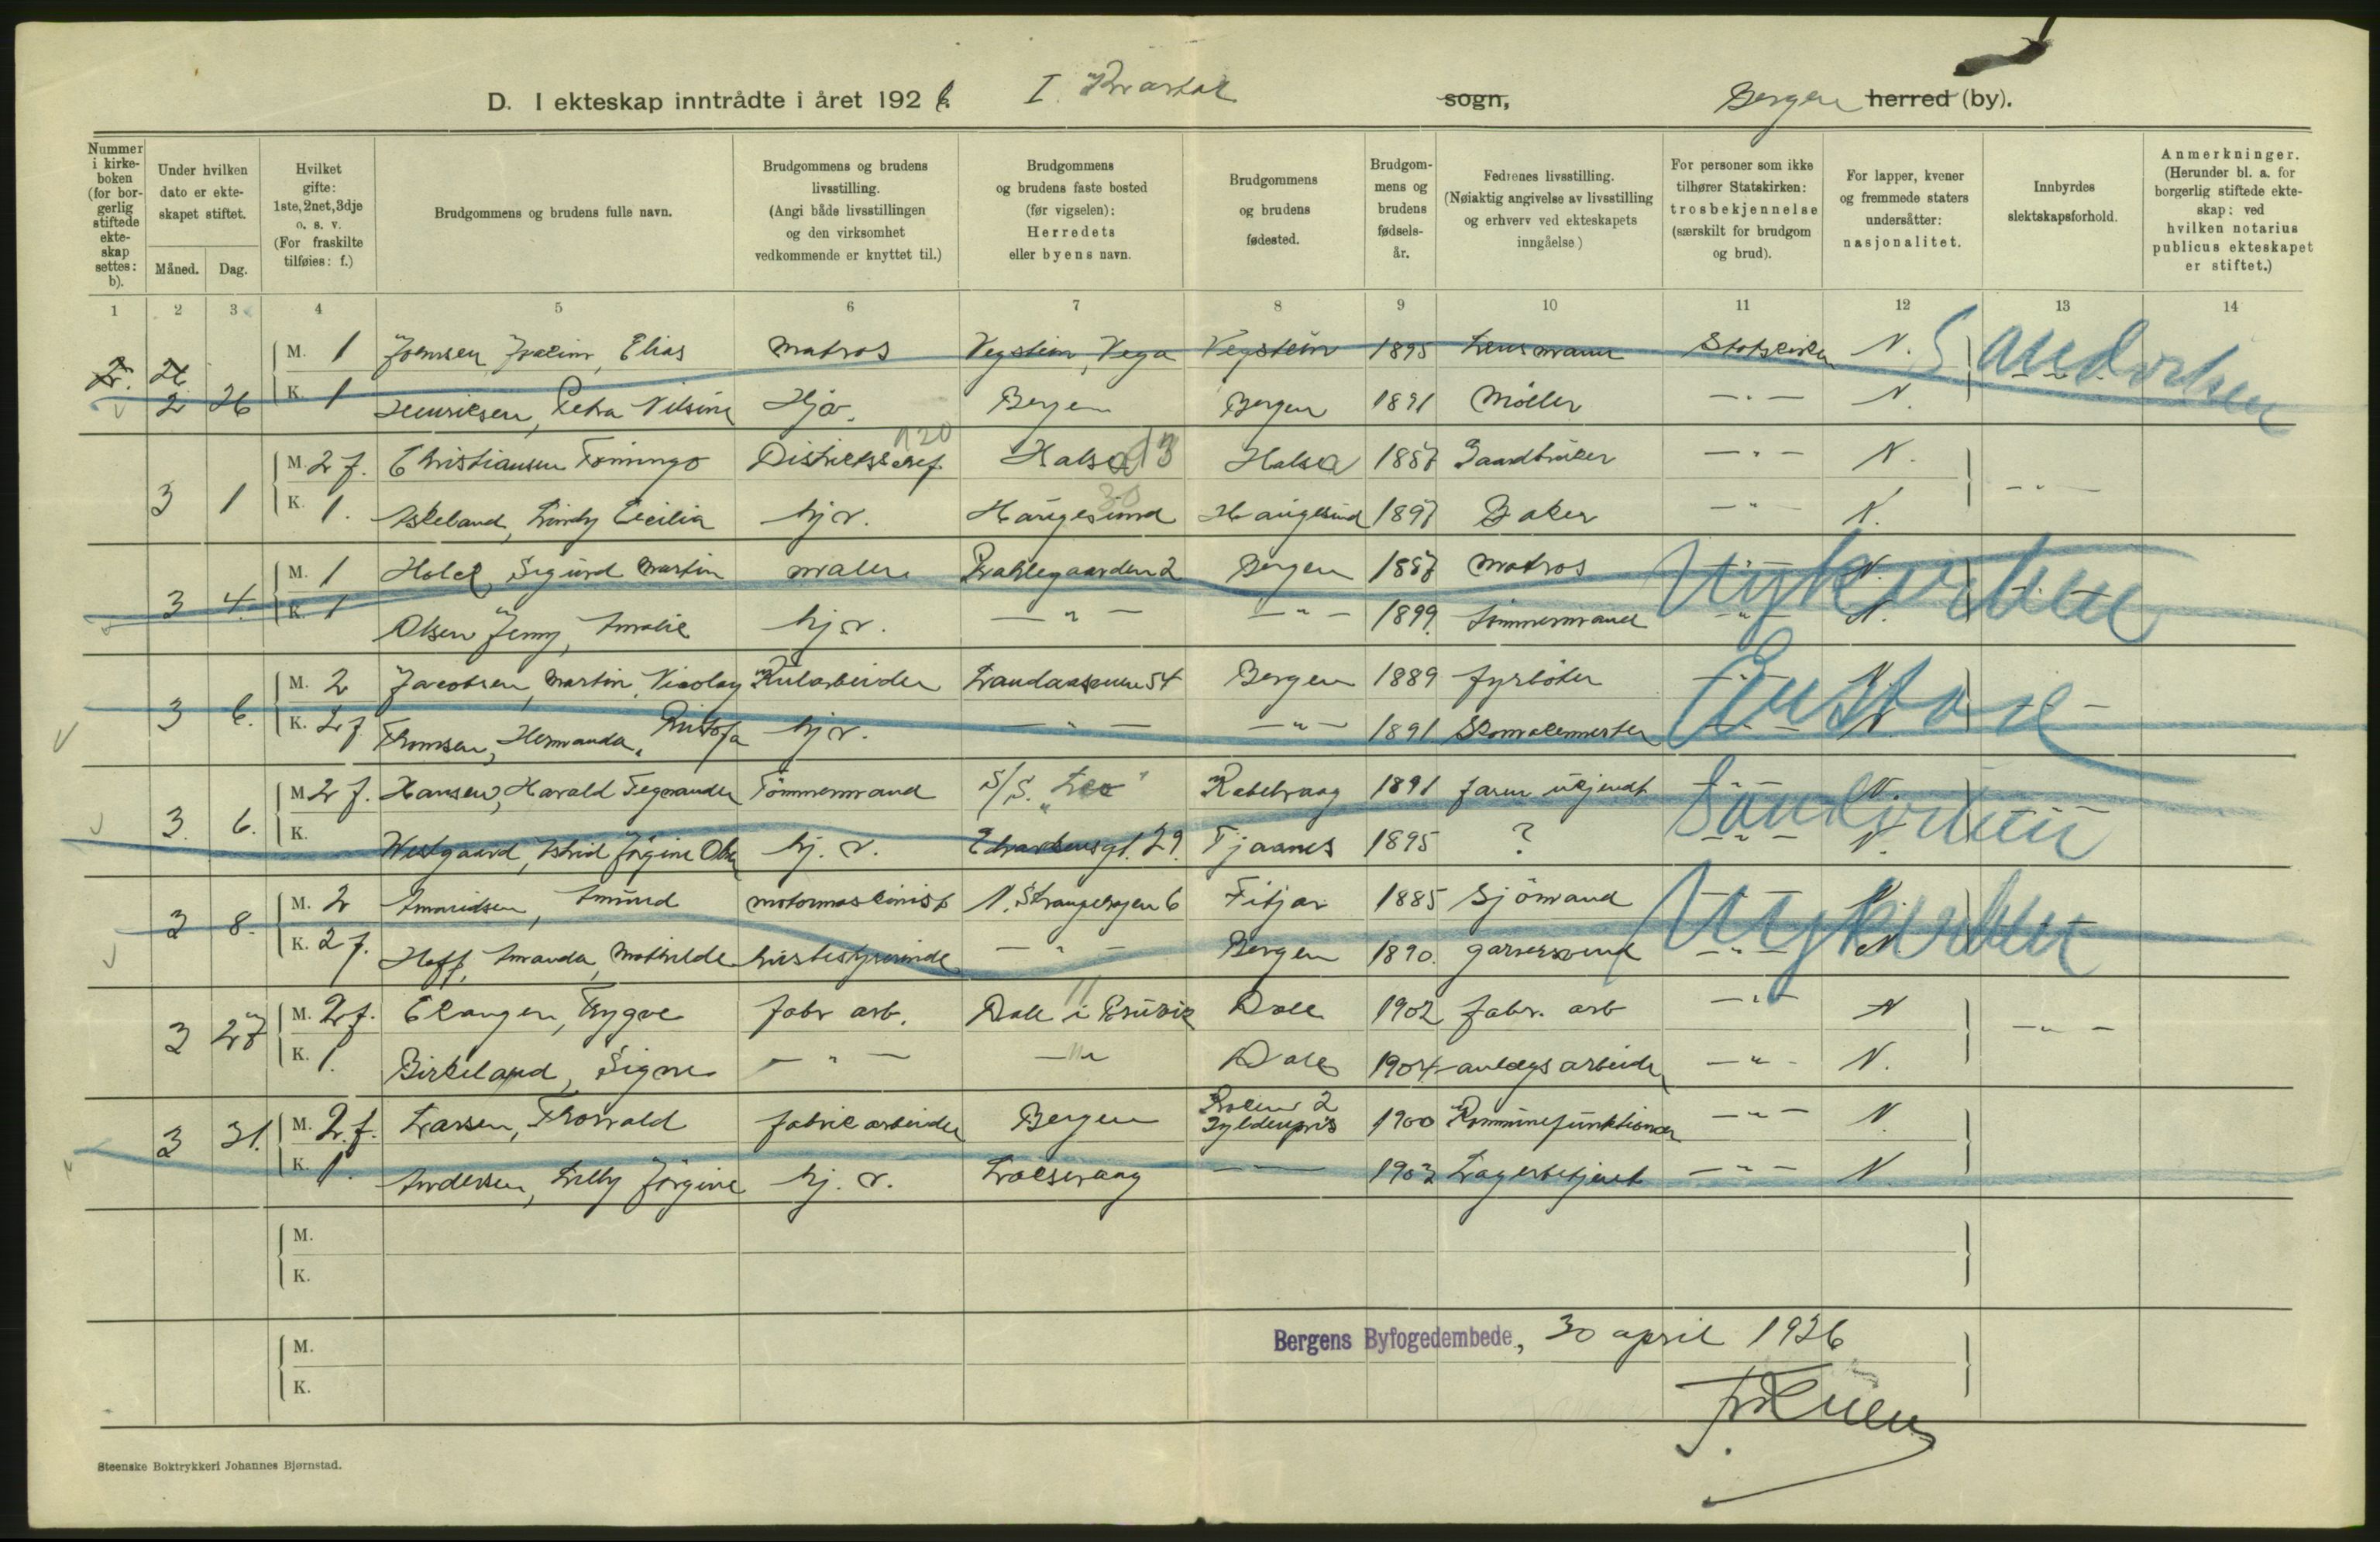 D. I ekteskap inntrådte i året 1926. I. Kvartal sogn, Bergen herred (by).
Nummer i kirkeboken (for borgerlig stiftede ekteskap settes: b).
Under hvilken dato er ekteskapet stiftet.
Måned. Dag.
Hvilket gifte: 1ste, 2net, 3dje o. s. v. (For fraskilte tilføies: f.)
Brudgommens og brudens fulle navn.
Brudgommens og brudens livsstilling. (Angi både livsstillingen og den virksomhet vedkommende er knyttet til.)
Brudgommens og brudens faste bosted (før vigselen): Herredets eller byens navn.
Brudgommens og brudens fødested.
Brudgommens og brudens fødselsår.
Fedrenes livsstilling. (Nøiaktig angivelse av livsstilling og erhverv ved ekteskapets inngåelse.)
For personer som ikke tilhører Statskirken: trosbekjennelse (særskilt for brudgom og brud).
For lapper, kvener og fremmede staters undersåtter: nasjonalitet.
Innbyrdes slektskapsforhold.
Anmerkninger. (Herunder bl. a. for borgerlig stiftede ekteskap: ved hvilken notarius publicus ekteskapet er stiftet.)
1 2 3 4 5 6 7 8 9 10 11 12 13 14
M. 1 Joensen, Joakim, Elias Matros Vegstein, Vega Vegstein 1895 Lensmann Statskirken N.
2 26 K. 1 Henriksen, Petra Nilsine Hjv. Bergen Bergen 1891 Møller — " — N.
Sandvirken
M. 2 f. Christiansen Distriktschef. 120 Halsa 13 Halsa 1887 Gaardbruker — " — N.
3 1 K. 1. Askeland, Cecilia hjv. Haugesund 30 Haugesund 1897 Baker — " N. — " —
M. 1 Holck, Sigurd Martin maler 2 Bergen 1887 Matros — " — N.
3 4. K. 1 Olsen Jenny, Amalie hjv. — " — — " — 1899. tømmermand — " — N.
Nykirken
M. 2 Jacobsen, Martin, Nicolay Kularbeider Landaasveien 54 Bergen 1889 fyrbøter — " — N.
3 6. K. 2 f Thomsen, Hermanda, hjv. — " — — " — 1891 Skomakermester — " — N.
M. 2 f. Hansen, Harald Tømmermand S/S. "Leo" Kabelvaag 1891 faren ukjendt — " — N.
3. 6. K. Westgaard, Astrid Jørgine Olsen hj. v. Edvardsensgt. 29. Tjaanes 1895 ? — " — N.
M. 2 Amundsen, Amund motormaskinist N. Strangehagen 6 Fitjar 1885 Sjømand — " — N.
3 8. K. 2 f. Hoff, Amanda, Mathilde husbestyrerinde — " — Bergen 1890. garversvend — " — N
Nykirken
M. 2 f. Trygve fabr arb. Dale i Bruvik 11 Dale 1902 fabr. arb — " — N
3 27 K. 1. Birkeland, Signe — " — — " — Dale 1904 anlægsarbeider — " — N. — " —
M. 2. f. Larsen, Thorvald fabrikarbeider Bergen 2 Gyldenpris 1900 Kommunefunktionær — " — N.
3 31. K. 1. Andersen, Lilly Jørgine hj. v. Laksevaag — — 1903 Lagerbetjent — " — N.
M.
K.
M.
K.
Bergens Byfogedembede, 30 april 1926
Steenske Boktrykkeri Johannes Bjørnstad.